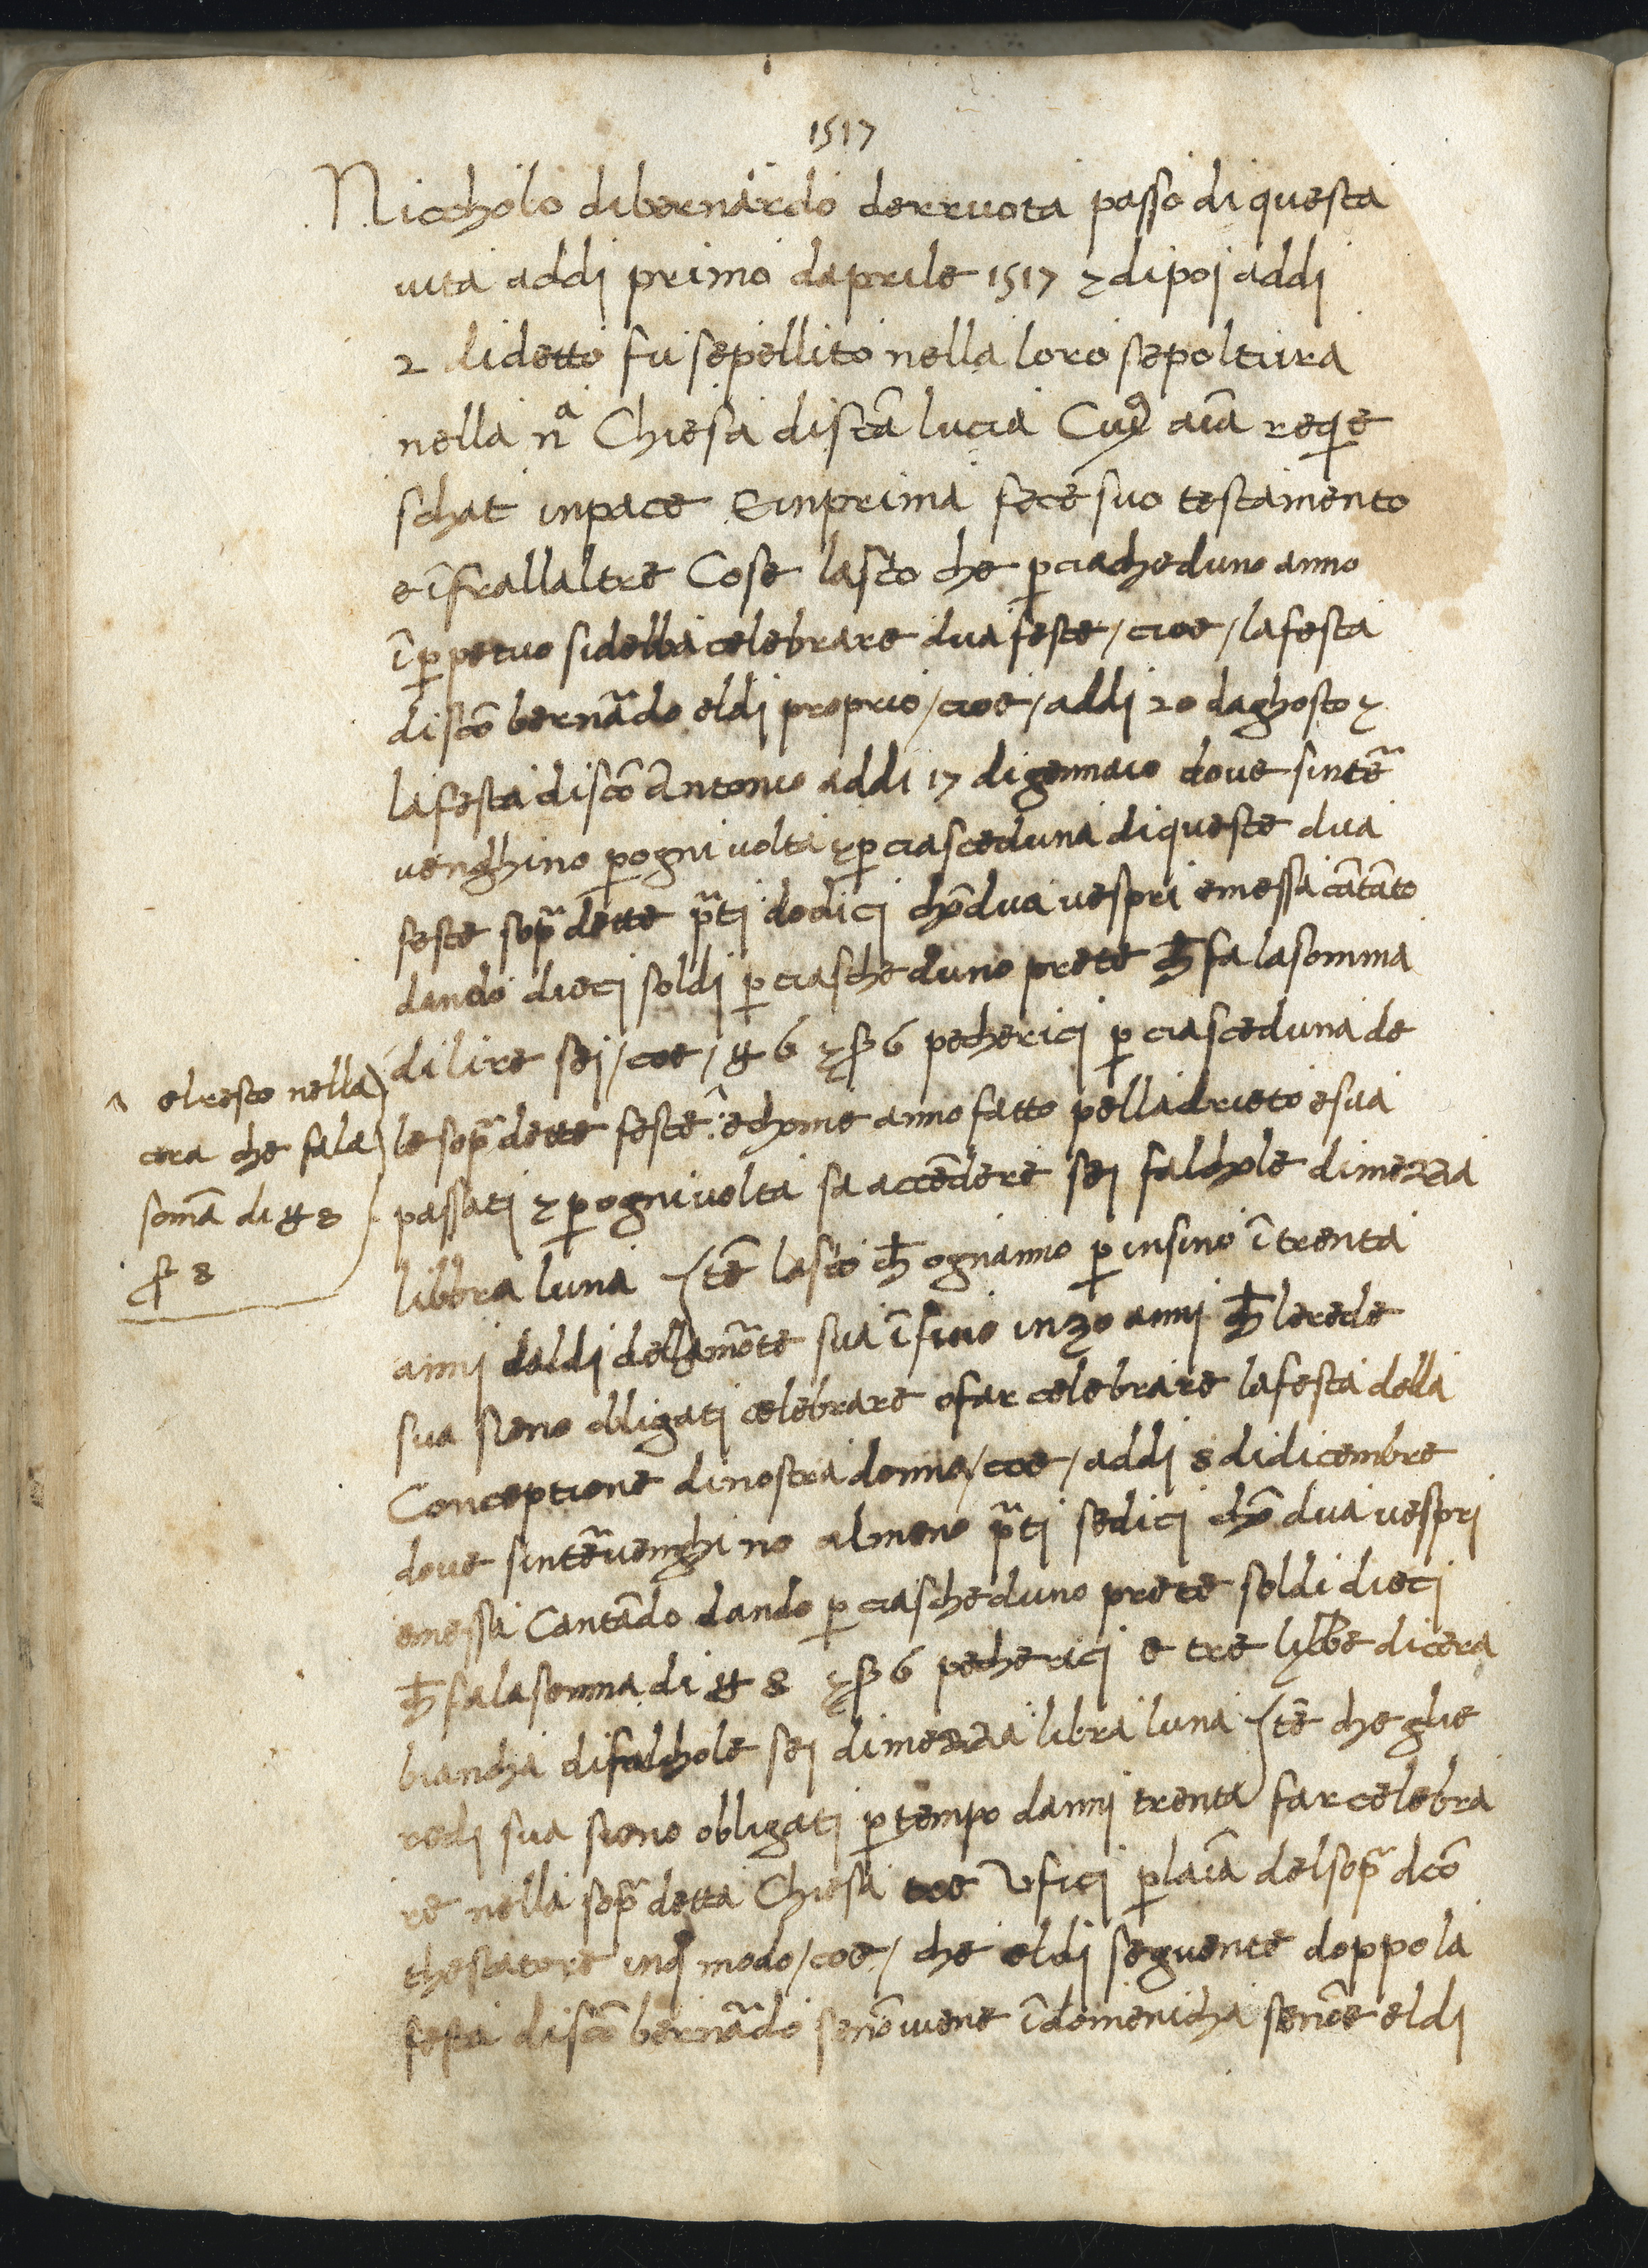 1517
Niccholo dibernardo derruota passo di questa
uita addi primo daprile 1517 & dipoi addi
2 di detto fu sepellito nella loro sepoltura
nella nª Chiesa di scã lucia Cuiꝰ aĩa reqe
schat inpace E inprima fece suo testamento
e ĩfrallaltre Cose lascio che ꝑ ciascheduno anno
ĩ ꝑpetuo si debba celebrare dua feste / cioe / la festa
di scõ bernãdo el di proprio / cioe / addi 20 daghosto &
la festa di scõ Antonio addi 17 di gennaio doue sintẽ
uenghino ꝑ ogni uolta & ꝑ ciasceduna di queste dua
feste sop̃ dette p̃ti dodici chõ dua uespri e messa cãtãto
dando dieci soldi ꝑ ciascheduno prete ch̃ fa la somma
di lire sei / coe / ₶ 6 & β 6 pe cherici ꝑ ciasceduna de
le sop̃ dette feste ^ e chome anno fatto pella drieto e sua
^ el resto nella
cera che fa la
somã di ₶ 8
β 8
passati & ꝑ ogni uolta fa accẽdere sei falchole di mezza
libbra luna Itẽ lascio ch̃ ognanno ꝑ insino ĩ trenta
anni dal di della mõte sua ĩ fino in 30 anni ch̃ lerede
sua sieno obligati celebrare o far celebrare la festa della
Conceptione di nostra donna / coe / addi 8 di dicembre
doue sintẽuenghino almeno p̃ti sedici chõ dua uespri
e messa Cantãdo dando ꝑ ciascheduno prete soldi dieci
ch̃ fa la somma di ₶ 8 & β 6 pe cherici e tre libbe di cera
biancha di falchole sei di mezza libra luna Itẽ che glie
redi sua sieno obligati ꝑ tempo danni trenta far celebra
re nella sop̃ detta Chiesa tre Vfici ꝑ laĩa del sop̃ dcõ
thestatore in qº modo / coe / che el di seguente doppo la
festa di scõ bernãdo se nõ uiene ĩ domenicha se nõe el di